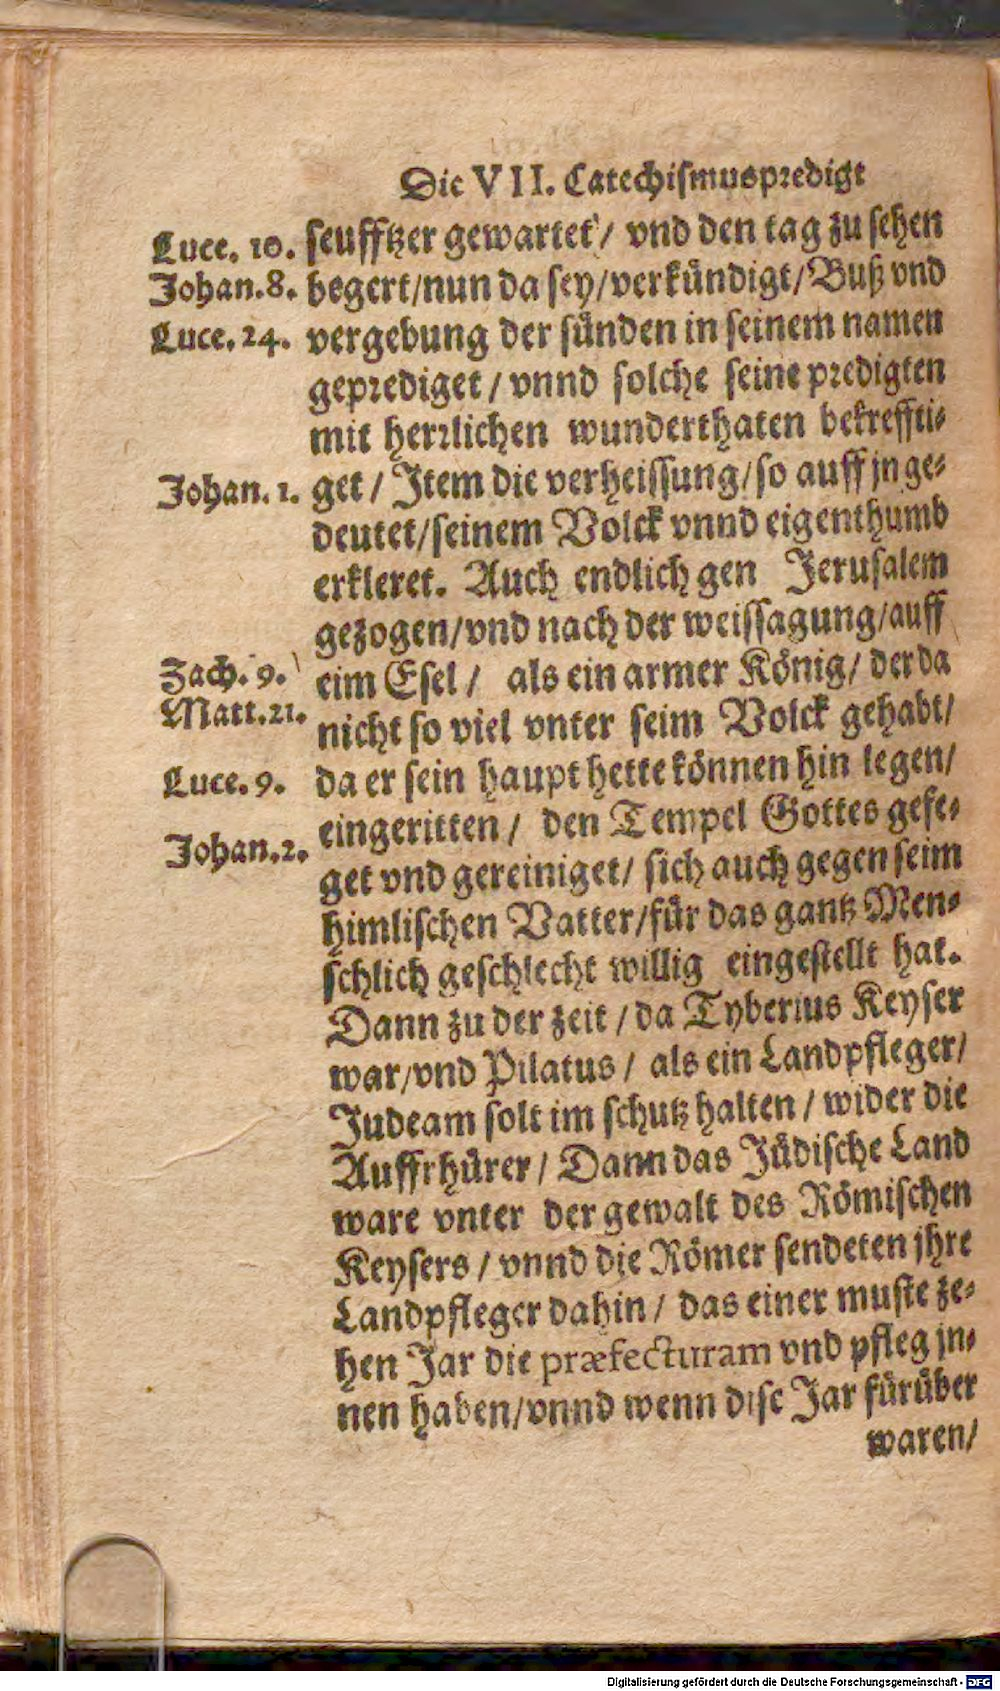 Die VII. Catechismuspredigt
Luce. 10. seufftzer gewartet / vnd den tag zu sehen
Johan. 8. begert / nun da sey / verkündigt / Buß vnd
Luce. 24. vergebung der sünden in seinem namen
geprediget / vnnd solche seine predigten
mit herrlichen wunderthaten bekreffti⸗
Johan. 1. get / Item die verheissung / so auff jn ge⸗
deutet / seinem Volck vnnd eigenthumb
erkleret. Auch endlich gen Jerusalem
gezogen / vnd nach der weissagung / auff
Zach. 9. eim Esel / als ein armer König / der da
Matt. 21. nicht so viel vnter seim Volck gehabt /
Luce. 9. da er sein haupt hette können hin legen /
eingeritten / den Tempel Gottes gefe⸗
Johan. 2. get vnd gereiniget / sich auch gegen seim
himlischen Vatter / für das gantz Men⸗
schlich geschlecht willig eingestellt hat.
Dann zu der zeit / da Tyberius Keyser
war / vnd Pilatus / als ein Landpfleger /
Judeam solt im schutz halten / wider die
Auffrhürer / Dann das Jüdische Land
ware vnter der gewalt des Römischen
Keysers / vnnd die Römer sendeten jhre
Landpfleger dahin / das einer muste ze⸗
hen Jar die præfecturam vnd pfleg jn⸗
nen haben / vnnd wenn dise Jar fürüber
waren /
Digitalisierung gefördert durch die Deutsche Forschungsgemeinschaft - DFG